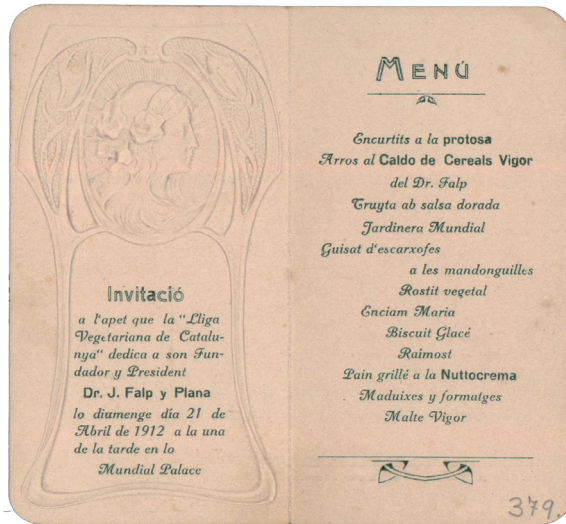 Invitació
a l'apet que la "Lliga
Vegetariana de Catalu-
nya" dedica a son Fun-
dador y President
Dr. J. Falp y Plana
lo diumenge día 21 de
Abril de 1912 a la una
de la tarde en lo
Mundial Palace
MENÚ
Encurtits a la protosa
Arros al Caldo de Cereals Vigor
del Dr. Falp
Truyta ab salsa dorada
Jardinera Mundial
Guisat d'escarxofes
a les mandonguilles
Rostit vegetal
Enciam Maria
Biscuit Glacé
Raimost
Pain grillé a la Nuttocrema
Maduixes y formatges
Malte Vigor
379.